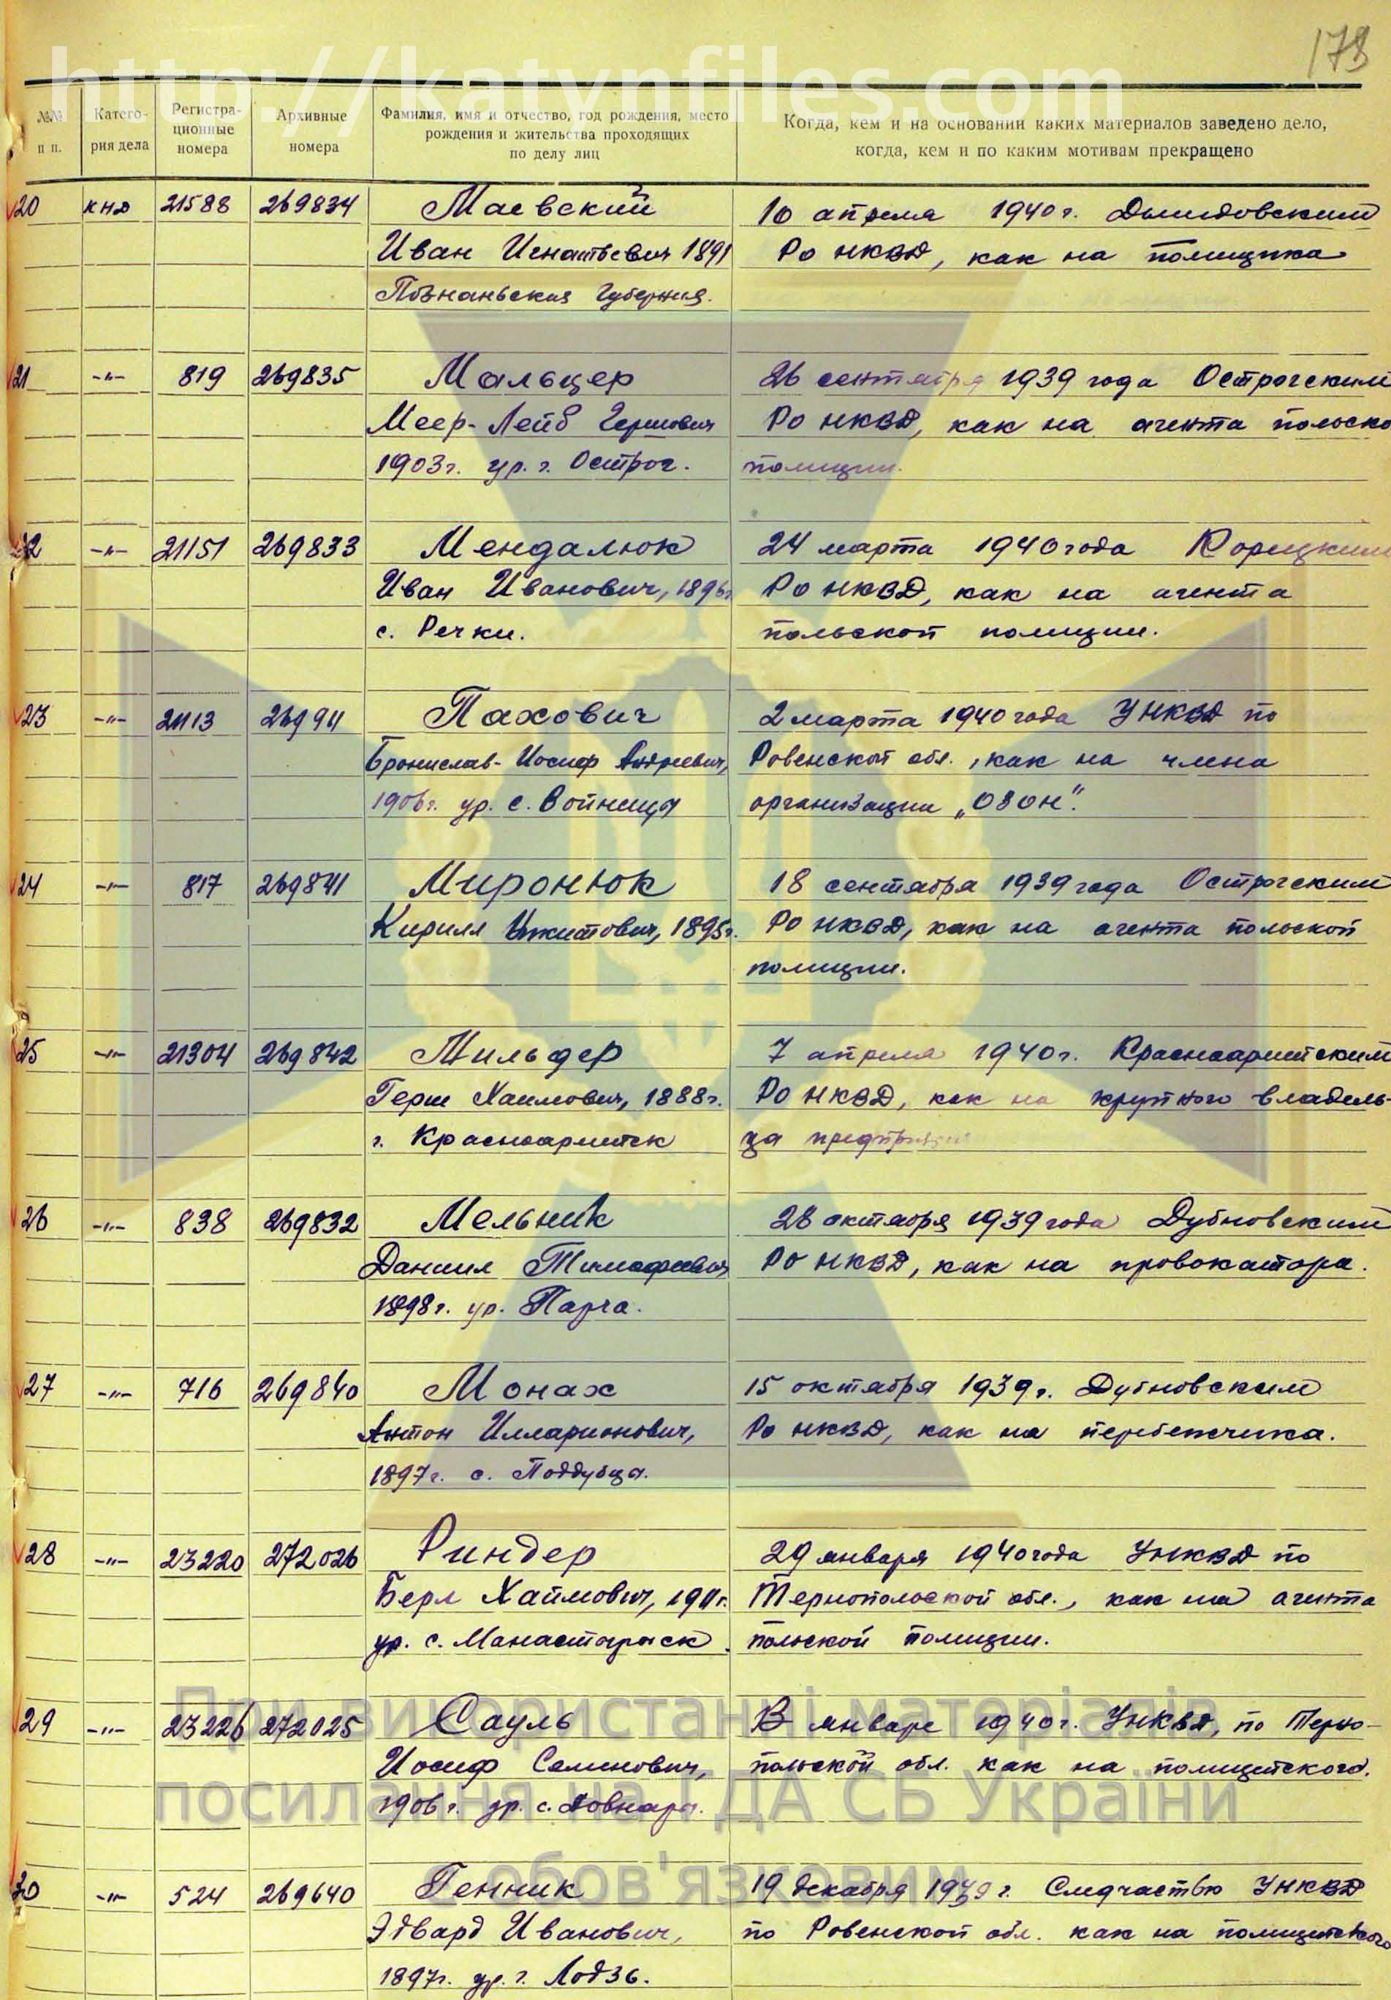 173
http://katynfiles.com
№№ п п.
Катего- рия дела
Регистра- ционные номера
Архивные номера
Фамилия, имя и отчество, год рождения, место рождения и жительства проходящих по делу лиц
Когда, кем и на основании каких материалов заведено дело, когда, кем и по каким мотивам прекращено
20 кнд 21588 269834 Маевский 10 апреля 1940 г. Демидовским
Иван Игнатьевич 1891 Ро НКВД, как на помещика
Познаньская губерния.
21 -"- 819 269835 Мальцер 26 сентября 1939 года Острогским
Меер-Лейб Гершович Ро НКВД, как на агента польско
1903 г. ур. г. Острог. полиции.
22 -"- 21151 269833 Мендалюк 24 марта 1940 года Корецким
Иван Иванович, 1896 г Ро НКВД, как на агента
с. Речки. польской полиции.
23 -"- 21113 Пахович 2 марта 1940 года УНКВД по
Бронислав-Иосиф Андреевич, Ровенской обл., как на члена
1906 г. ур. с. Войница организации „ОЗОН".
24 -"- 817 269841 Миронюк 18 сентября 1939 года Острогским
Кирилл 1895 г. Ро НКВД, как на агента польской
полиции.
25 -"- 21304 269842 Мильдер 7 апреля 1940 г. Красноармейским
Герш Хаимович, 1888 г. Ро НКВД, как на крупного владель-
г. Красноармейск ца предприятия
26 -"- 838 269832 Мельник 28 октября 1939 года Дубновским
Даниил Тимофеевич Ро НКВД, как на провокатора.
1898 г. ур. Парча.
27 -"- 716 269840 Монах 15 октября 1939 г. Дубновским
Антон Илларионович, Ро НКВД, как на перебежчика.
1897 г. с. Поддубцы.
28 -"- 23220 272026 Риндер 29 января 1940 года УНКВД по
Берл Хаймович, 1911 г. Тернопольской обл., как на агента
ур. с. Манастырск. польской полиции.
29 -"- 23226 272025 Сауль В январе 1940 г. УНКВД, по Терно-
Иосиф Семенович, польской обл. как на полицейского.
1906 г. ур. с.
30 -"- 524 269640 Генник 19 декабря 1939 г. Следчастью УНКВД
Эдвард Иванович, по Ровенской обл. как на полицейского
1897 г. ур. г. Лодзь.
При використанні матеріалів
посилання на ГДА СБ України
є обов'язковим